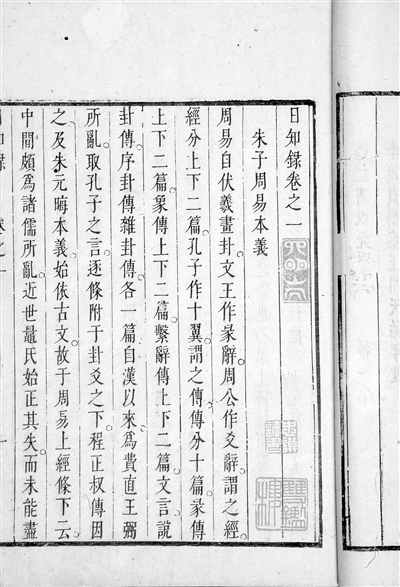 日知錄卷之一
朱子周易本義
周易自伏羲畫卦文王作彖辭周公作爻辭謂之經
經分上下二篇孔子作十翼謂之傳傳分十篇彖傳
上下二篇象傳上下二篇繫辭傳上下二篇文言說
卦傳序卦傳雜卦傳各一篇自漢以來為費直王弼
所亂取孔子之言逐條附于卦爻之下程正叔傳因
之及朱元晦本義始依古文故于周易上經條下云
中間頗為諸儒所亂近世鼂氏始正其失而未能盡
日知錄 卷之一 一